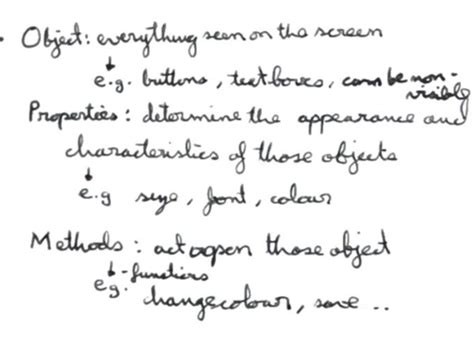 . Object: everything seen on the screen
↓
e.g. buttons, textboxes, can be non-visible
Properties: determine the appearance and
characteristics of those objects
↓
e.g size, font, colour
Methods: act upon those object
↓ -functions
e.g. changecolour, save ..